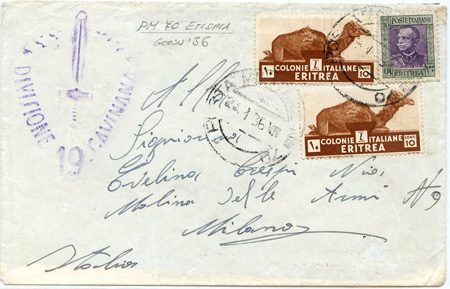 PM 70 ETIOPIA
GENN '36
DIVISIONE 19 GAVININANA
POSTE ITALIANE
ERITREA
COLONIE ITALIANE
10 CENT 10
ERITREA
COLONIE ITALIANE
10 CENT 10
ERITREA
Alla
Signorina
Evelina Crespi
Molina delle Armi N° 9
Milano
Italia